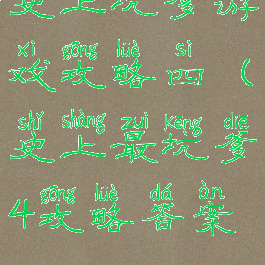 史上坑爹游
xì gōng lüè sì
戏攻略四(
shǐ shàng zuì kēng diē
史上最坑爹
gōng lüè dá àn
4攻略答案